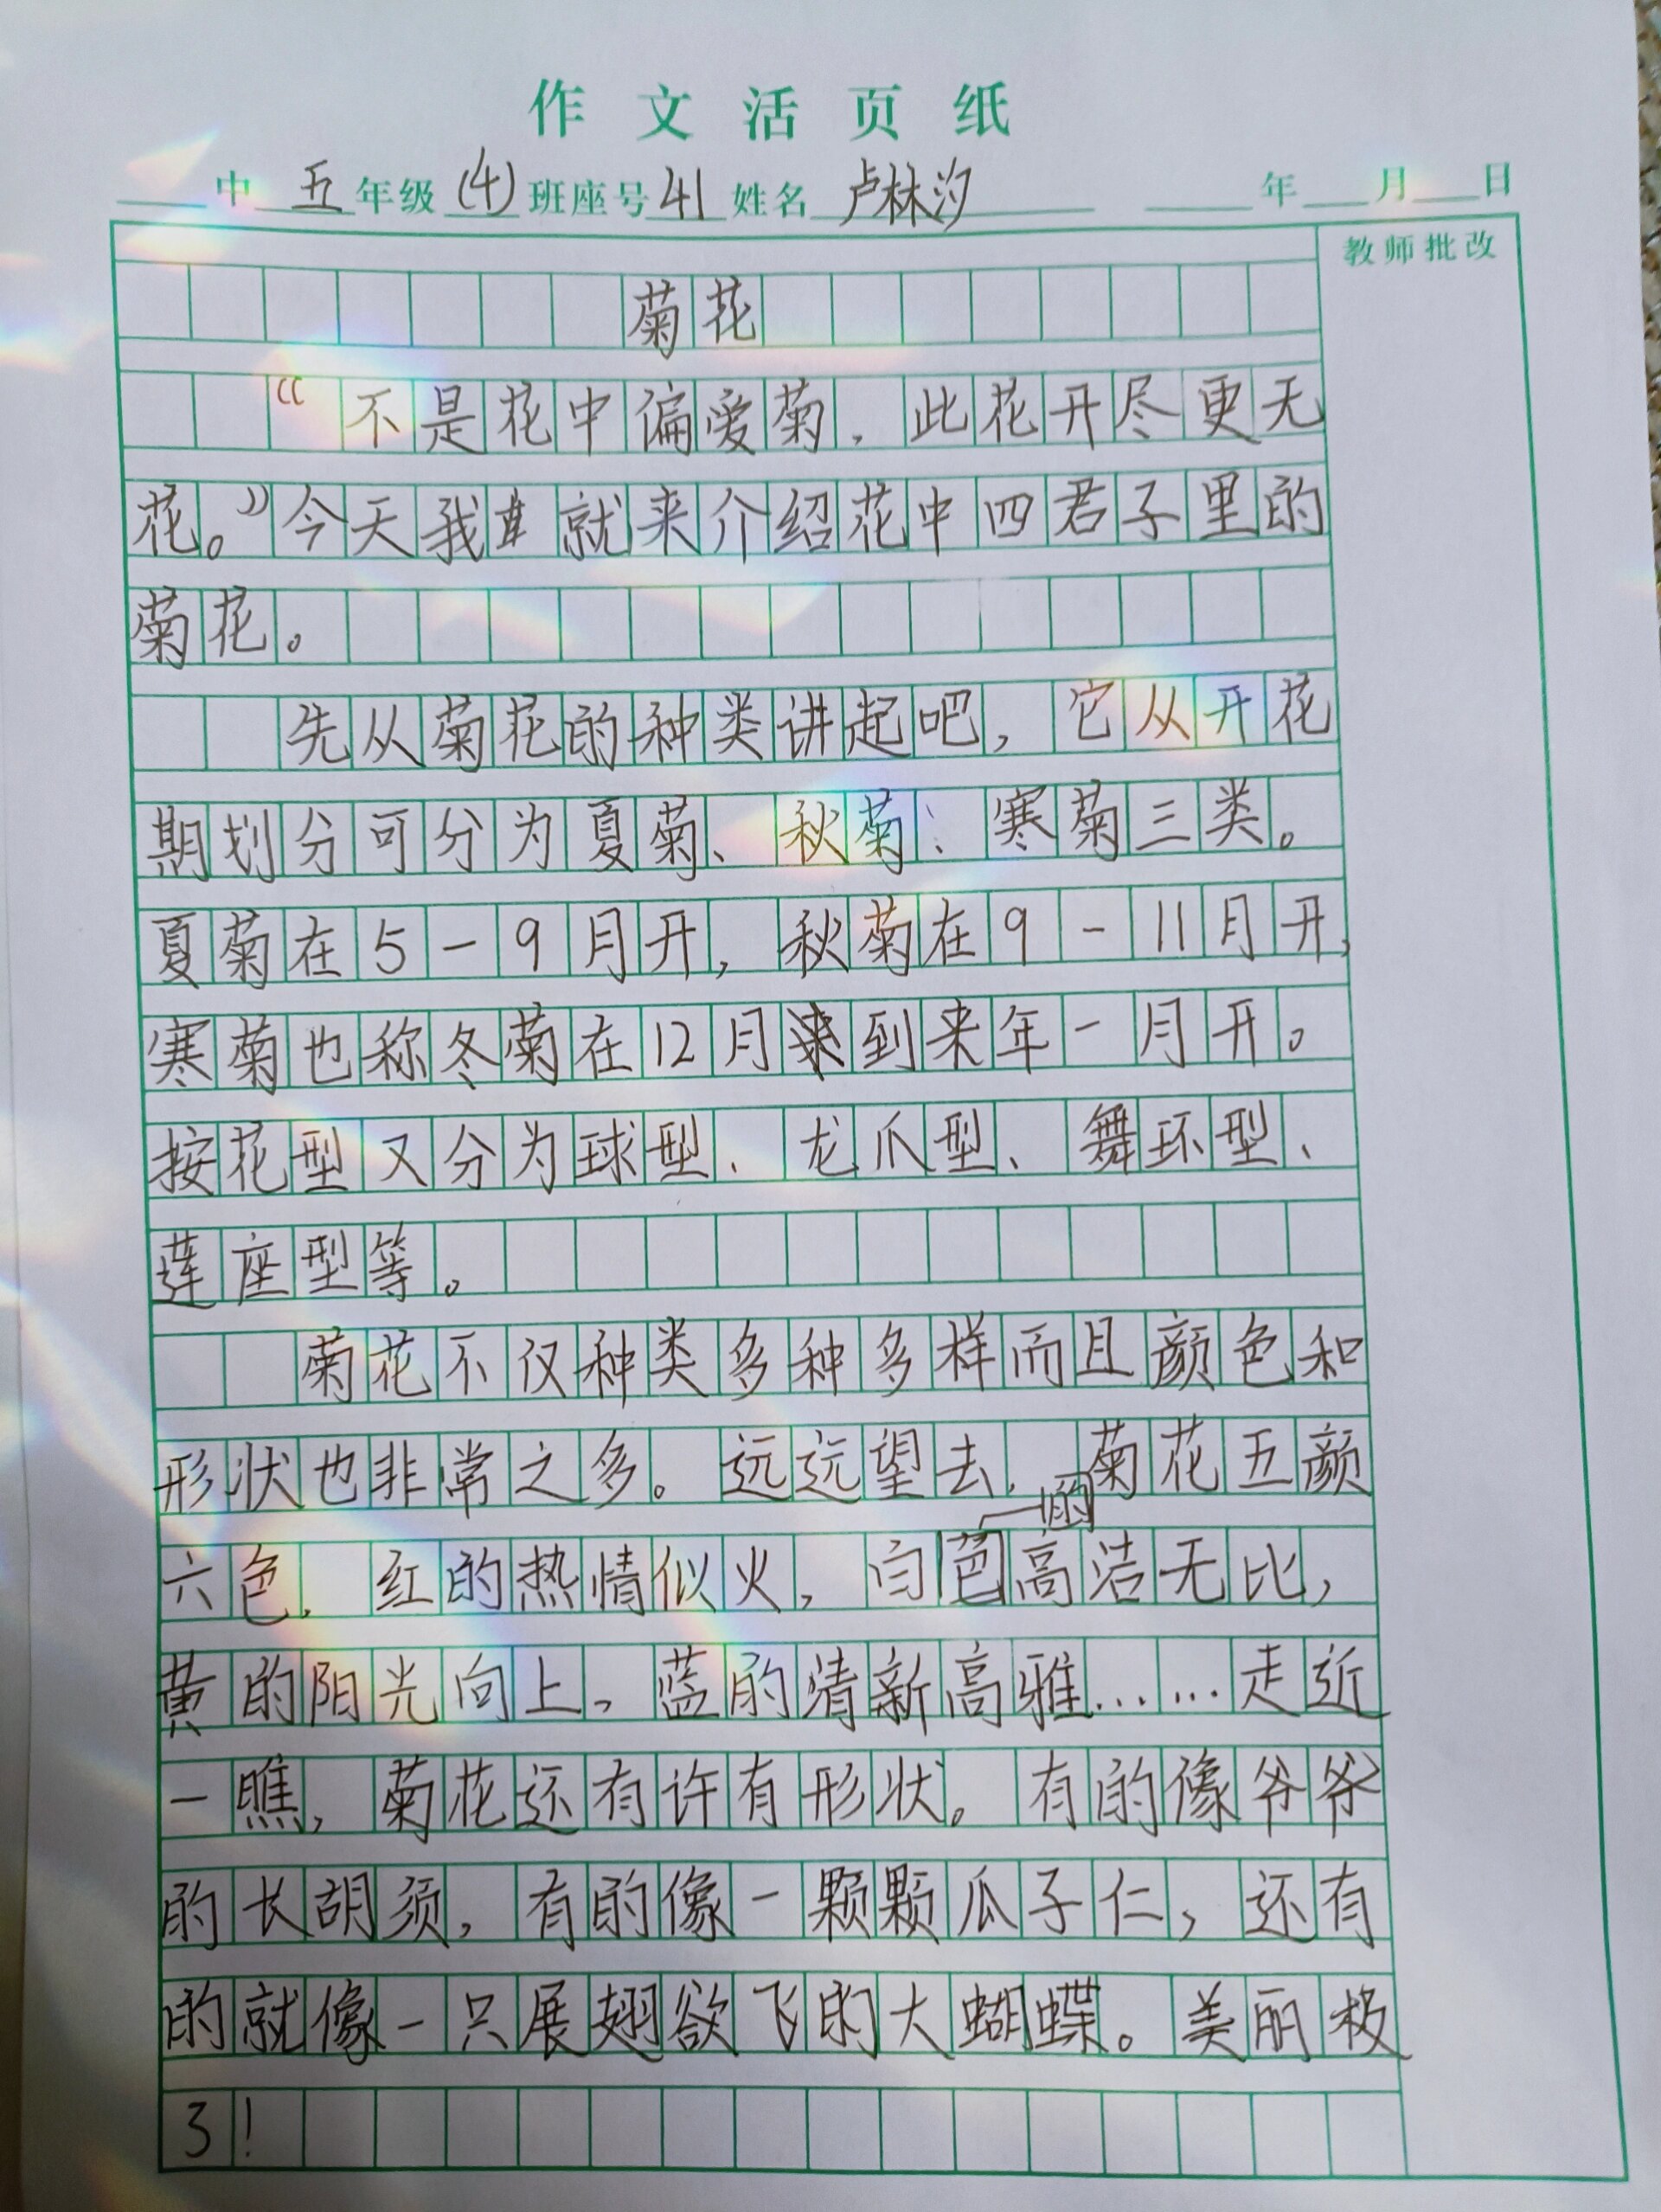 作文活页纸
中 五 年级 (4) 班座号 41 姓名 卢林汐 年 月 日
教师批改
菊花
“不是花中偏爱菊,此花开尽更无
花。”今天我就来介绍花中四君子里的
菊花。
先从菊花的种类讲起吧,它从开花
期划分可分为夏菊、秋菊、寒菊三类。
夏菊在5-9月开,秋菊在9-11月开,
寒菊也称冬菊在12月到来年一月开。
按花型又分为球型、龙爪型、舞环型、
莲座型等。
菊花不仅种类多种多样而且颜色和
形状也非常之多。远远望去,菊花五颜
六色,红的热情似火,白的高洁无比,
黄的阳光向上,蓝的清新高雅……走近
一瞧,菊花还有许有形状。有的像爷爷
的长胡须,有的像一颗颗瓜子仁,还有
的就像一只展翅欲飞的大蝴蝶。美丽极
了!